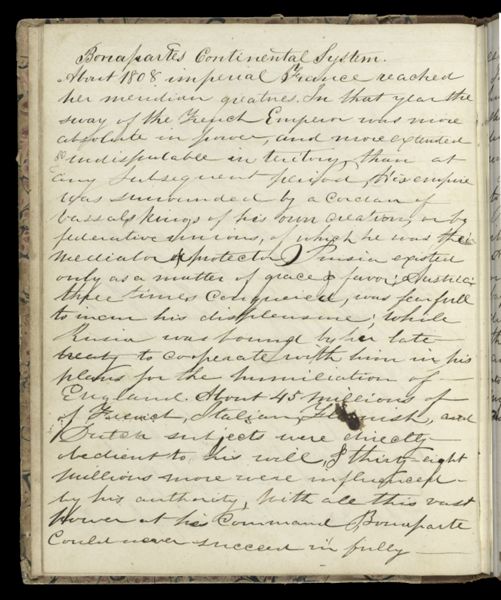 Bonapartes Continental System.
About 1808 imperial France reached
her meridian greatnes. In that year the
sway of the French Emperor was more
absolute in power, and more extended
& indisputable in teritory, than at
any subsequent period, His empire
was surrounded by a cordan of
vassals kings of his own creation, or by
federative unions, of which he was the
mediator & protector, Prusia existed
only as a matter of grace & favor; Austria
three times Conquered, was fearfull
to incur his displeasure; While
Rusia was bound by her late
treaty to cooperate with him in his
plans for the humiliation of
England. About 45 millions of
of French, Italian, Flemish, and
Dutch subjects were directly
obedient to his will, & thirty eight
millions more were influenced
by his authority, With all this vast
power at his Command Bonaparte
Could never succeed in fully